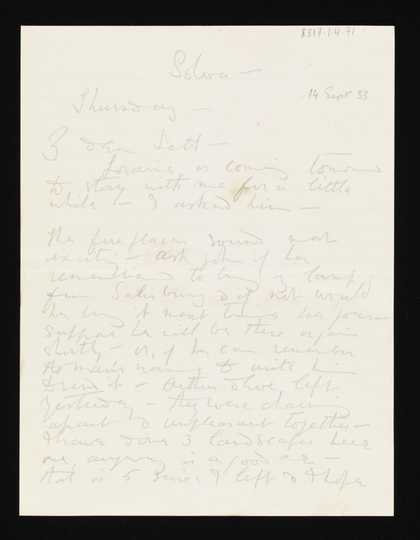 8317.1.4.71
Solva —
14 Sept 33
Thursday —
dear
is coming tomorrow
to stay with me for a little
while — I asked him —
The fireplaces sound most
exciting — ask John if he
remembered to bring my lamp
from Salisbury & if not would
he bring it next time he
suppose he will be there again
shortly — or, if he can remember
the man's name to write him
& send it — Arthur & left
yesterday — they were
apart & unpleasant together —
I have done 3 landscapes here
one anyway is a good one —
that is 5 since I left & I hope